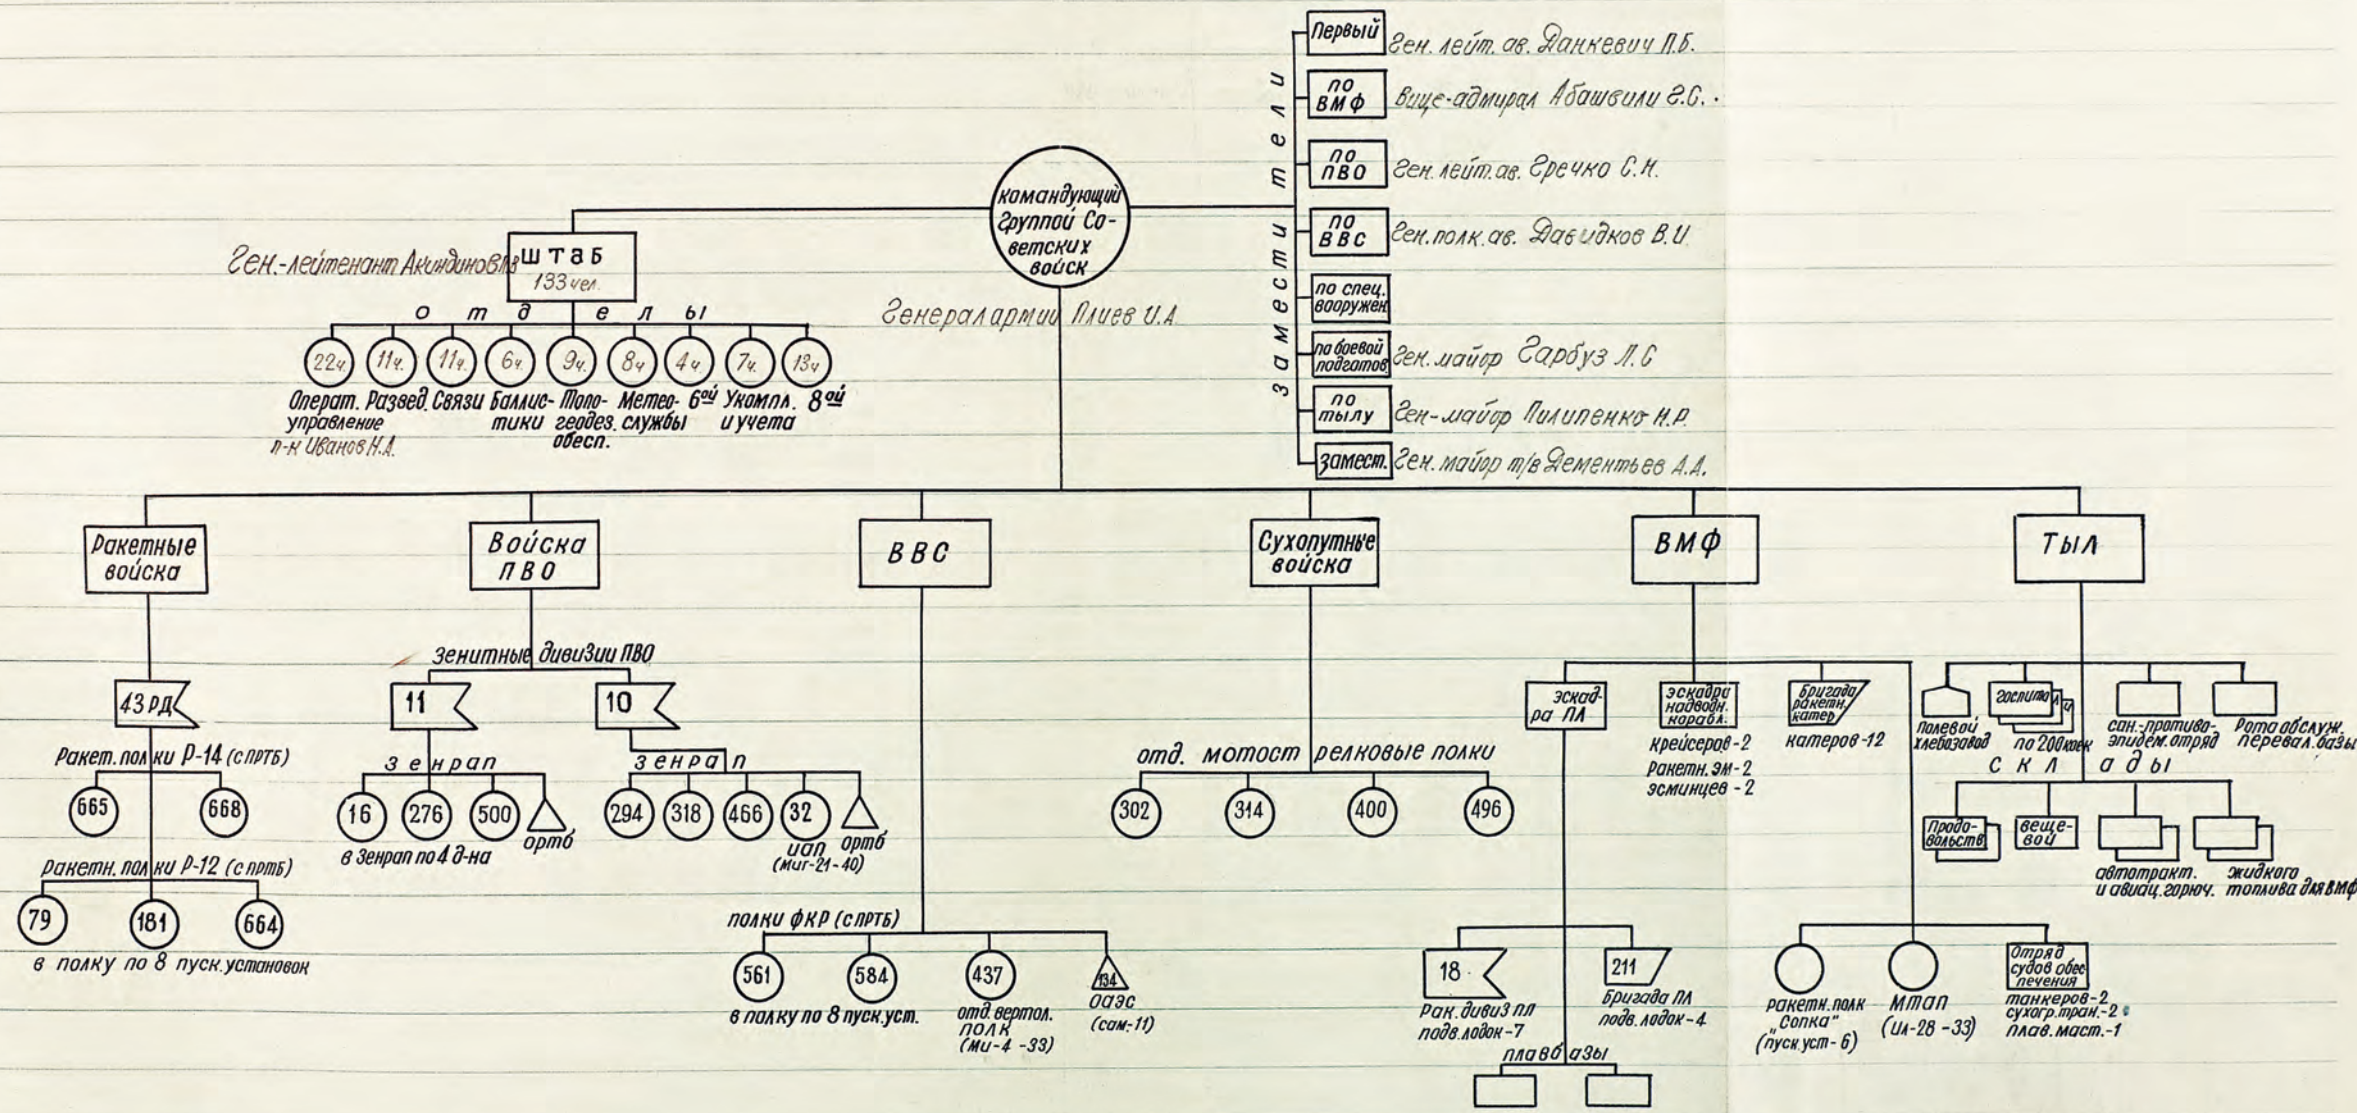 Первый
Ген. лейт. ав. Данкевич П.Б.
по
ВМФ
Вице-адмирал Абашвили Г.С.
по
ПВО
Ген. лейт. ав. Гречко С.Н.
по
ВВС
Ген. полк. ав. Давидков В.И.
по спец.
вооружен
по боевой
подготов.
Ген. майор Гарбуз Л.С
по
тылу
Ген-майор Пилипенко Н.Р.
замест.
Ген. майор т/в Дементьев А.А.
заместители
командующий
группой Со-
ветских
войск
Генерал армии Плиев И.А.
Ген.-лейтенант Акиндинов
штаб
133 чел.
отделы
22ч. 11ч. 11ч. 6ч. 9ч. 8ч 4ч. 7ч. 13ч
Операт.
управление
п-к Иванов Н.А.
Развед.
Связи
Баллис-
тики
Топо-
геодез.
обесп.
Метео-
службы
6ой
Укомпл.
и учета
8ой
Ракетные
войска
Войска
ПВО
ВВС
Сухопутные
войска
ВМФ
Тыл
43 РД
Ракет. полки Р-14 (с ПРТБ)
665 668
Ракетн. полки Р-12 (с ПРТБ)
79 181 664
в полку по 8 пуск. установок
зенитные дивизии ПВО
11 10
зенрап
16 276 500
ортб
в зенрап по 4 д-на
зенрап
294 318 466 32
иап
(миг-21-40)
ортб
полки ФКР (с ПРТБ)
561 584 437 134
в полку по 8 пуск. уст.
отд. вертол.
полк
(ми-4 -33)
оаэс
(сам.-11)
отд. мотострелковые полки
302 314 400 496
эскад-
ра ПЛ
эскадра
надводн.
корабл.
крейсеров-2
Ракетн. эм-2
эсминцев - 2
Бригада
ракетн.
катер
катеров -12
18
Рак. дивиз пл
подв. лодок-7
211
Бригада ПЛ
подв. лодок-4
плавбазы
ракетн. полк
"Сопка"
(пуск. уст- 6)
мтап
(ил-28 -33)
Отряд
судов обес
печения
танкеров-2
сухогр. тран.-2
плав. маст.-1
полевой
хлебозавод
госпитали
по 200 коек
сан.-противо-
эпидем. отряд
Рота обслуж.
перевал. базы
склады
Продо-
вольств
веще-
вой
автотракт.
и авиац. горюч.
жидкого
топлива для ВМФ